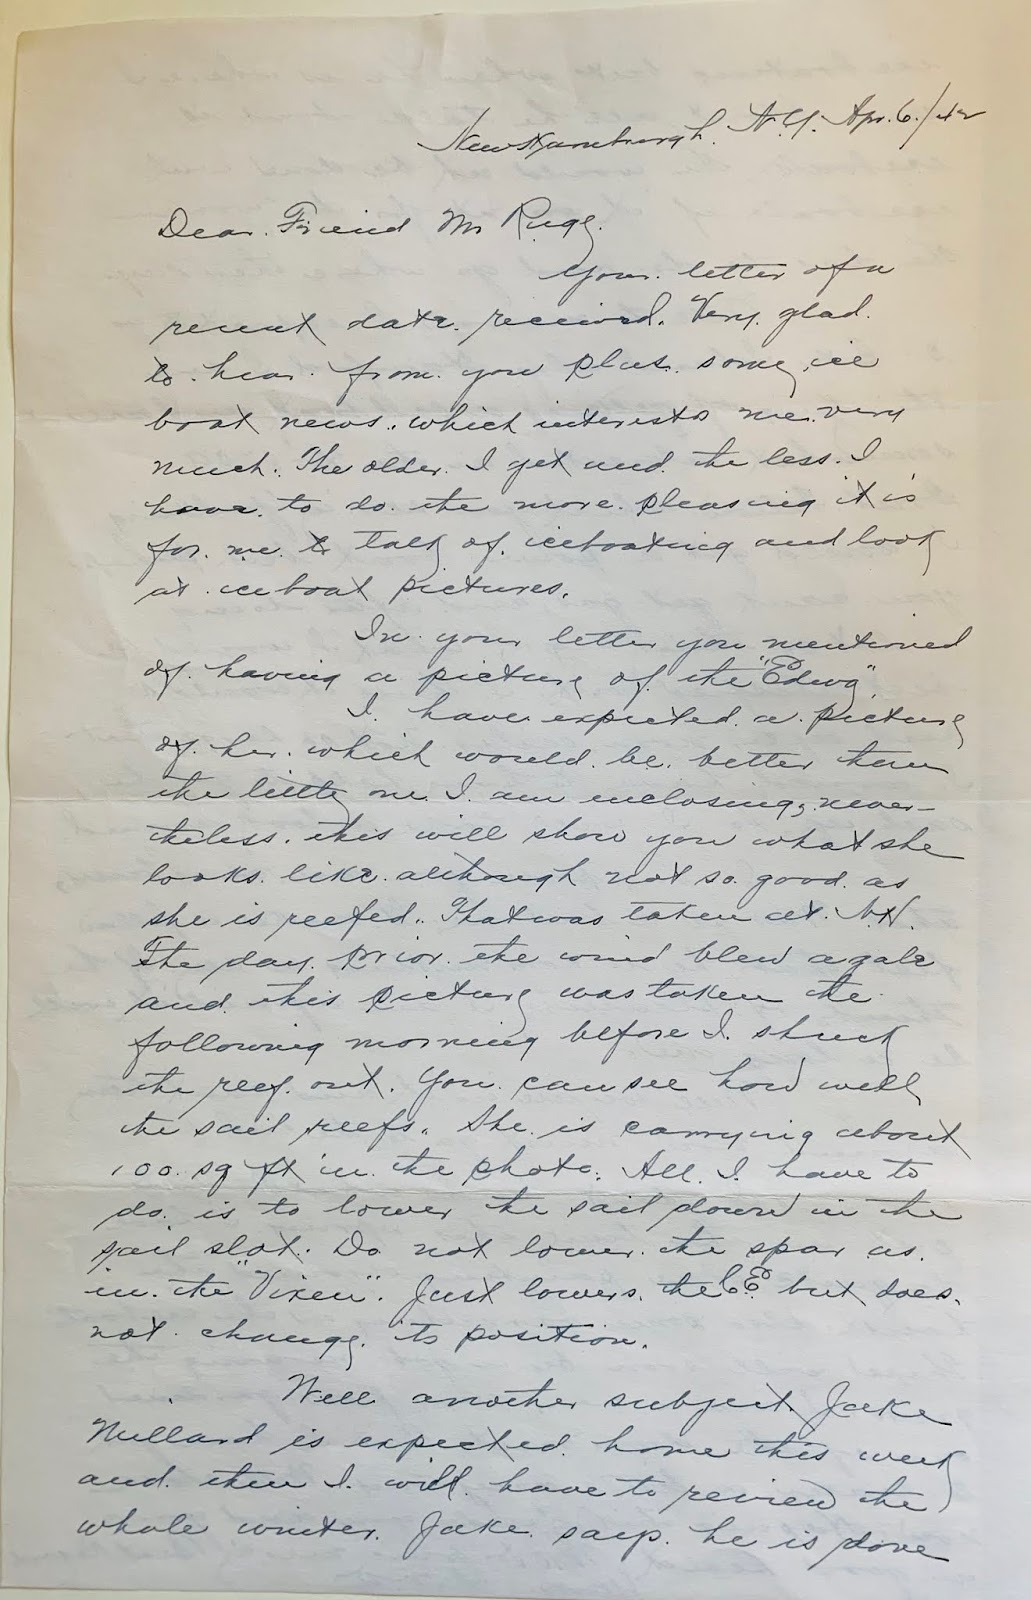 New Hamburgh. N.Y. Apr. 6./42
Dear Friend Mr Ruge.
Your letter of a
recent date received. Very glad
to hear from you plus some ice
boat news, which interests me very
much. The older I get and the less I
have to do the more pleasing it is
for me to talk of iceboating and look
at iceboat pictures.
In your letter you mentioned
of having a picture of the "Edwg".
I have expected a picture
of her which would be better than
the little one I am enclosing, never-
theless this will show you what she
looks like although not so good as
she is reefed. That was taken at N.H.
The day prior the wind blew a gale
and this picture was taken the
following morning before I shuck
the reef out. You can see how well
the sail reefs. She is carrying about
100 sq ft in the photo. All I have to
do is to lower the sail down in the
sail slot. Do not lower the spar as
in the "Vixen". Just lowers the C.E. but does
not change its position.
Well another subject. Jake
Millard is expected home this week
and then I will have to review the
whole winter. Jake says he is done